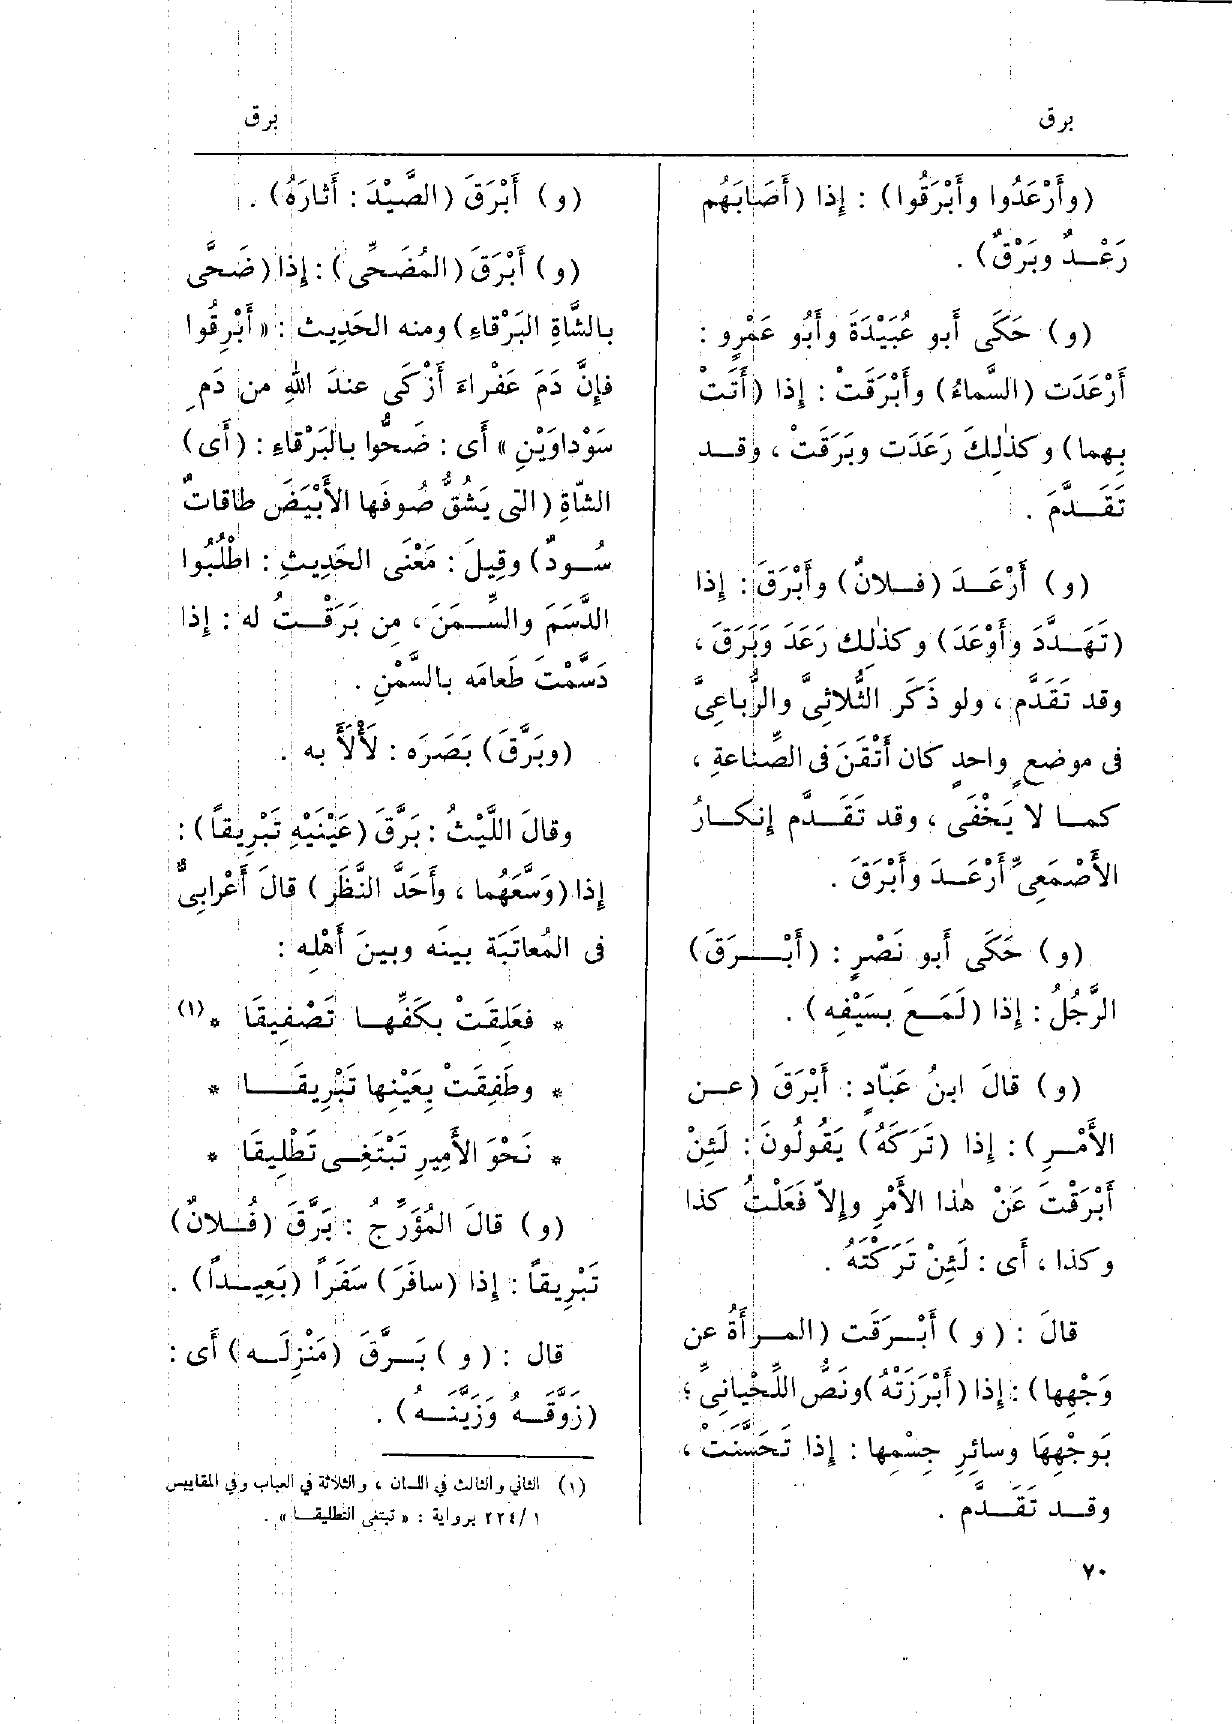 برق
برق
(وأَرْعَدُوا وأَبْرَقُوا) : إِذا (أَصَابَهُم
رَعْـدٌ وبَرْقٌ) .
(و) حَكَى أَبو عُبَيْدَةَ وأَبُو عَمْرٍو :
أَرْعَدَت (السَّماءُ) وأَبْرَقَتْ : إِذا (أَتَتْ
بِهما) وكذٰلِكَ رَعَدَت وبَرَقَتْ ، وقـد
تَقَـدَّمَ .
(و) أَرْعَـدَ (فـلانٌ) وأَبْرَقَ : إِذا
(تَهَـدَّدَ وأَوْعَدَ) وكذٰلِك رَعَدَ وَبَرَقَ ،
وقد تَقَدَّم ، ولو ذَكَر الثُّلاثِىَّ والرُّباعِىَّ
فى موضعٍ واحدٍ كان أَتْقَنَ فى الصِّناعةِ ،
كمـا لا يَخْفَى ، وقد تَقَـدَّم إِنكـارُ
الأَصْمَعِىِّ أَرْعَـدَ وأَبْرَقَ .
(و) حَكَى أَبو نَصْرٍ : (أَبْـرَقَ)
الرَّجُلُ : إِذا (لَمَـعَ بسَيْفِه) .
(و) قالَ ابنُ عَبّادٍ : أَبْرَقَ (عـن
الأَمْـرِ) : إِذا (تَرَكَهُ) يَقُولُونَ : لَئِنْ
أَبْرَقْتَ عَنْ هٰذا الأَمْرِ وإِلاّ فَعَلْتُ كذا
وكذا ، أَى : لَئِنْ تَرَكْتَهُ .
قالَ : (و) أَبْـرَقَت (المـرأَةُ عن
وَجْهِها) : إِذا (أَبْرَزَتْهُ) ونَصُّ اللِّحْيانِىِّ :
بَوجْهِهَا وسائِرِ جِسْمِها : إِذا تَحَسَّنَتْ ،
وقـد تَقَـدَّم .
٧٠
(و) أَبْرَقَ (الصَّيْدَ : أَثارَهُ) .
(و) أَبْرَقَ (المُضَحِّى) : إِذا (ضَحَّى
بالشَّاةِ البَرْقاءِ) ومنه الحَدِيث : « أَبْرِقُوا
فإِنَّ دَمَ عَفْراءَ أَزْكَى عندَ اللهِ من دَمِ
سَوْداوَيْنِ » أَى : ضَحُّوا بالبَرْقاءِ : (أَى)
الشّاةِ (التى يَشُقُّ صُوفَها الأَبْيَضَ طاقاتٌ
سُـودٌ) وقِيلَ : مَعْنَى الحَدِيثِ : اطْلُبُوا
الدَّسَمَ والسِّـمَنَ ، مِن بَرَقْـتُ له : إِذا
دَسَّمْتَ طَعامَه بالسَّمْنِ .
(وبَرَّقَ) بَصَرَه : لَأْلَأَ به .
وقالَ اللَّيْثُ : بَرَّقَ (عَيْنَيْهِ تَبْرِيقاً) :
إِذا (وَسَّعَهُما ، وأَحَدَّ النَّظَر) قالَ أَعْرابِىٌّ
فى المُعاتَبَة بينَه وبينَ أَهْلِه :
* فعَلِقَتْ بكَفِّهـا تَصْفِيقَا *(١)
* وطَفِقَتْ بِعَيْنِها تَبْرِيقَـا *
* نَحْوَ الأَمِيرِ تَبْتَغِـى تَطْلِيقَا *
(و) قالَ المُؤَرِّجُ : بَرَّقَ (فُـلانٌ)
تَبْرِيقاً : إِذا (سافَرَ) سَفَرًا (بَعِيـداً) .
قال : (و) بَـرَّقَ (مَنْزِلَـه) أَى :
(زَوَّقَـهُ وَزَيَّنَـهُ) .
(١) الثاني والثالث في اللسان ، والثلاثة في العباب وفي المقاييس
١/٢٢٤ برواية : « تبتغى التطليقـا » .